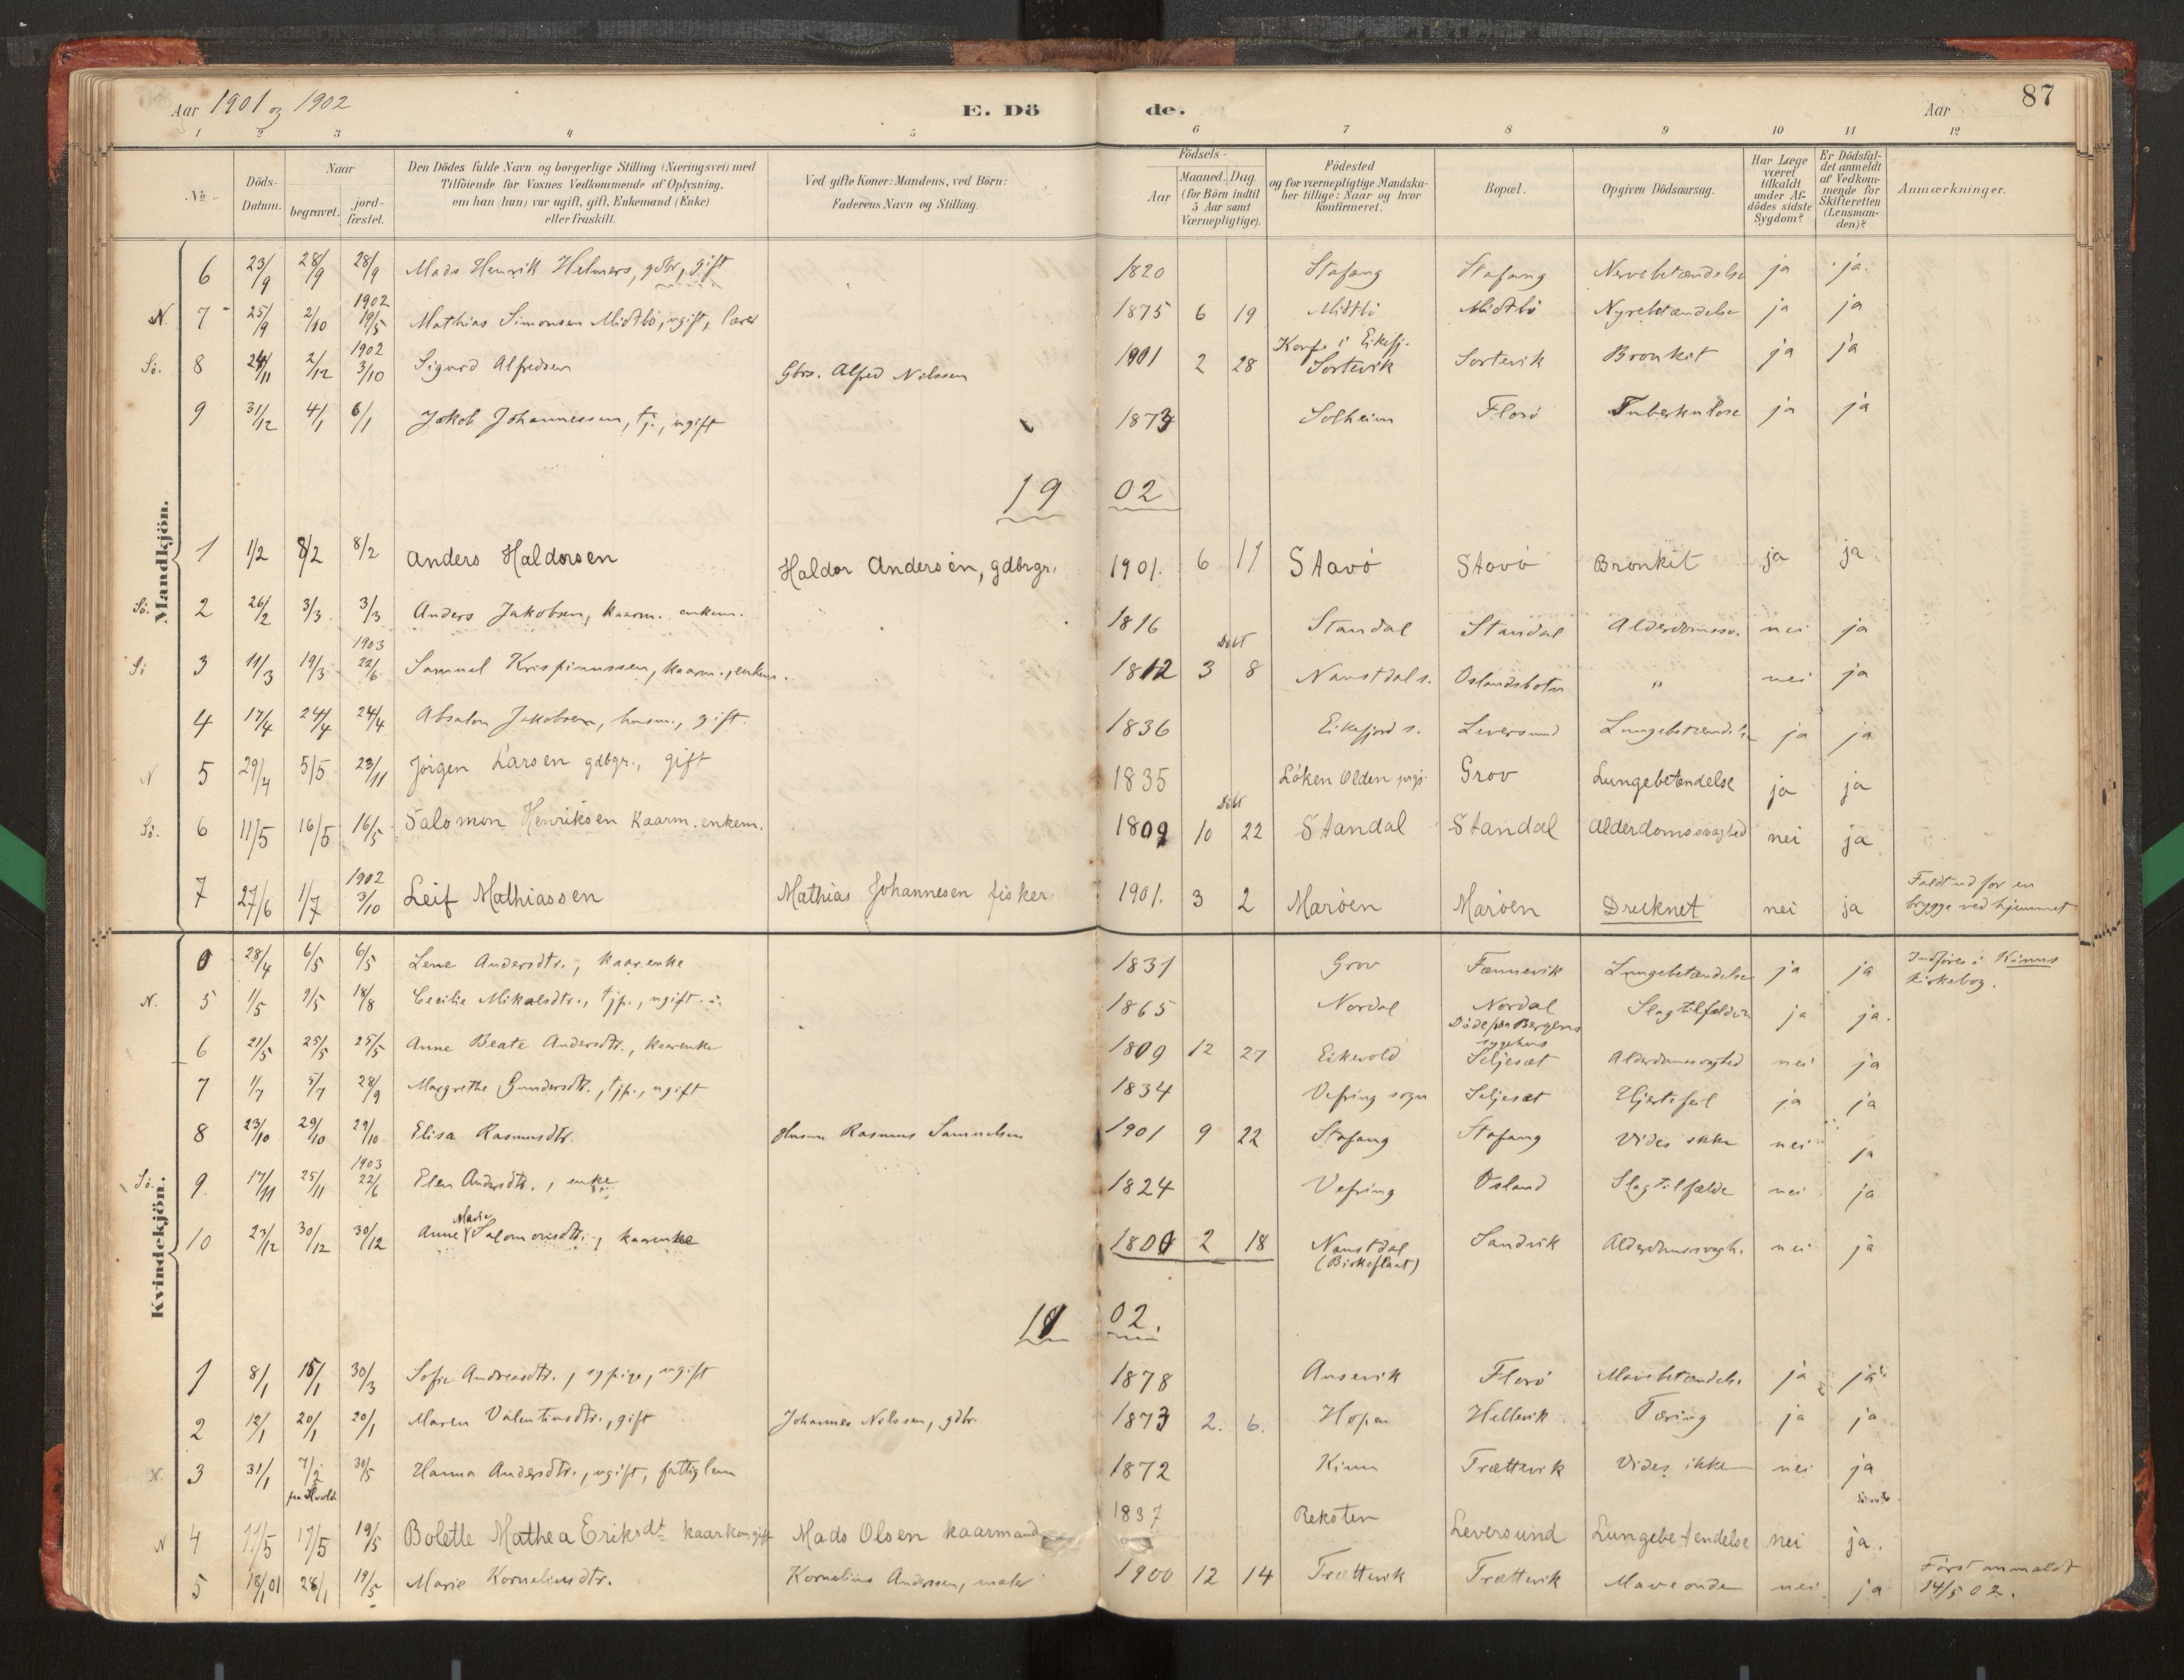 Aar 1901 og 1902 E. Dö de. Aar 87
1 2 3 4 5 6 7 8 9 10 11 12
No. Döds-Datum. Naar begravet. jord-fæstet. Den Dödes fulde Navn og borgerlige Stilling (Næringsvei) med Tilföiende for Voxnes Vedkommende af Oplysning, om han (hun) var ugift, gift, Enkemand (Enke) eller fraskilt. Ved gifte Koner: Mandens, ved Börn: Faderens Navn og Stilling. Födsels- Aar Maaned. Dag. (for Börn indtil 5 Aar samt Værnepligtige). Födested og for værnepligtige Mandskaber tillige: Naar og hvor konfirmeret. Bopæl. Opgiven Dödsaarsag. Har Læge været tilkaldt under Afdödes sidste Sygdom? Er Dödsfaldet anmeldt af Vedkommende for Skifteretten (Lensmanden)? Anmærkninger.
Mandkjön.
6 23/9 28/9 28/9 Mads Henrik Helmers, gdbr., gift 1820 Stafang Stafang Nervebetændelse ja ja.
N. 7 25/9 2/10 1902 19/5 Mathias Simonsen Midtbö, ugift, lærer 1875 6 19 Midtbö Midtbö Nyrebetændelse ja ja
Konf. i Eikefj.
Sö. 8 24/11 2/12 1902 3/10 Sigurd Alfredsen Gbrs. Alfred Nilssen 1901 2 28 Sortevik Sortevik Bronkit ja ja
9 31/12 4/1 6/1 Jakob Johannessen, tj., ugift 1873 Solheim Florö Tuberkulose ja ja
19 02
1 1/2 8/2 8/2 Anders Haldorsen Haldor Andersen, gdbrgr. 1901. 6 11 Stavö Stavö Bronkit ja ja
Sö. 2 26/2 3/3 3/3 Anders Jakobsen, kaarm. enkem. 1816 Standal Standal Alderdomssv. nei ja
Sö 3 11/3 19/3 1903 22/6 Samuel Krispinussen, kaarm., enkem. 1812 3 Döbt 8 Naustdal s. Oslandsbotn " nei ja
4 17/4 24/4 24/4 Absalon Jakobsen, husm., gift. 1836 Eikefjord s. Leversund Lungebetændelse ja ja
N 5 29/4 5/5 23/11 Jörgen Larsen gdbgr., gift 1835 Löken Olden prgj. Grov Lungebetændelse ja ja
Sö. 6 11/5 16/5 16/5 Salomon Henriksen Kaarm. enkem. 1809 10 Döbt 22 Standal Standal Alderdomssvaghed nei ja
7 27/6 1/7 1902 3/10 Leif Mathiassen Mathias Johannesen fisker 1901. 3 2 Maröen Maröen Drucknet nei ja Faldt ud for en brygge ved hjemmet
Kvindekjön.
0 28/4 6/5 6/5 Lene Andersdtr., kaarenke 1831 Grov Fannevik Lungebetændelse ja ja Indföres i Kinns kirkebog.
N. 5 1/5 9/5 18/8 Cecilie Mikalsdtr., tjp., ugift. 1865 Nordal Nordal Döde paa Bergens sygehus Slagtilfælde ja ja.
6 21/5 25/5 25/5 Anne Beate Andersdtr., kaarenke 1809 12 27 Eikevold Seljeset Alderdomssvaghed nei ja
7 1/7 5/7 28/9 Margrethe Gundersdtr., tjp., ugift 1834 Vefring sogn Seljeset Hjertefeil ja ja
8 23/10 29/10 29/10 Elisa Rasmusdtr. Husm. Rasmus Samuelsen 1901 9 22 Stafang Stafang Vides ikke nei ja
Sö. 9 17/11 25/11 1903 22/6 Elen Andersdtr., enke 1824 Vefring Osland Slagtilfælde nei ja
10 23/12 30/12 30/12 Anne Marie Salomonsdtr., kaarenke 1800 2 18 Naustdal (Birkeflaat) Sandvik Alderdomssvagh. nei ja
19 02.
1 8/1 15/1 30/3 Sofie Andreasdtr., sypige, ugift 1878 Ausevik Florö Mavebetændelse ja ja
2 12/1 20/1 20/1 Maren Valentinsdtr., gift Johannes Nilssen, gdbr. 1873 2. 6. Hopen Hellevik Tæring ja ja
3 31/1 7/2 30/5 Hanna Andersdtr., ugift, fattiglem 1872 Kinn Trættevik Vides ikke nei ja
N 4 11/5 17/5 19/5 Bolette Mathea Eriksdt. kaarkone gift Mads Olsen kaarmand 1837 Reksten Leversund Lungebetendelse nei ja.
5 18/1 01 28/1 19/5 Marie Korneliusdtr. Kornelius Andersen, maler 1900 12 14 Trættevik Trættevik Maveonde nei ja Först anmeldt 14/5 02.